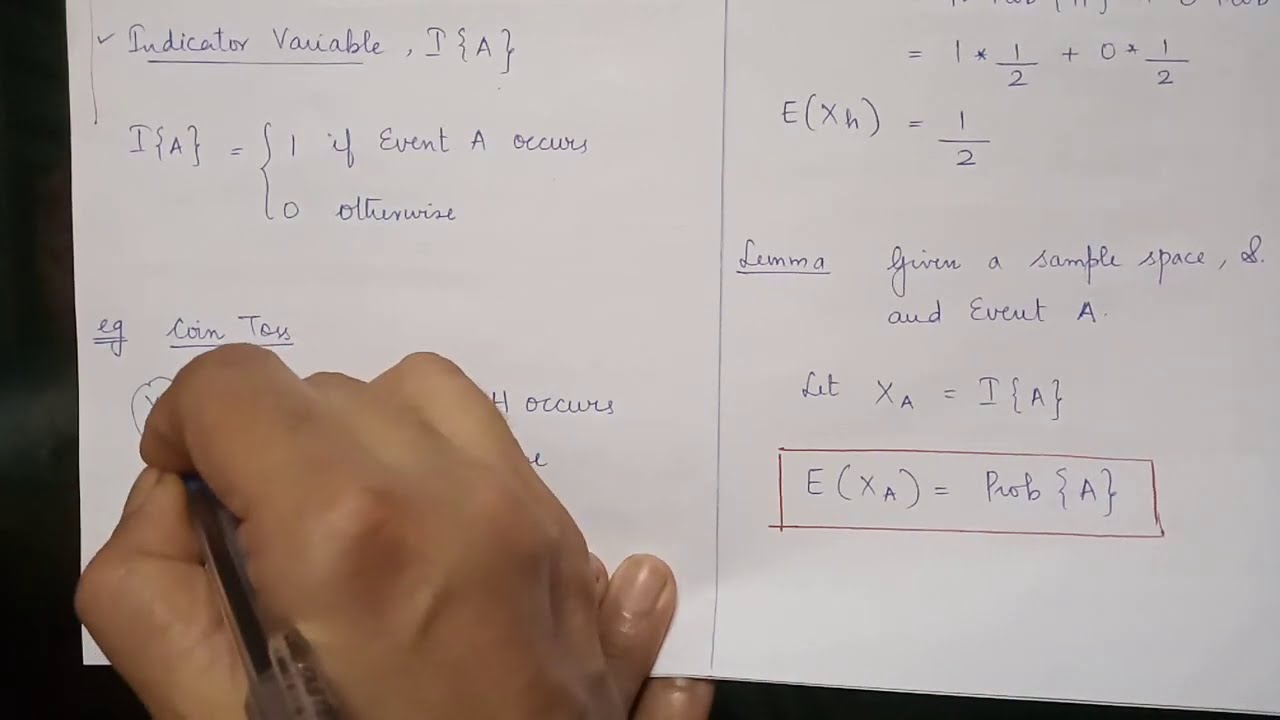 ✓ Indicator Variable, I{A}
I{A} = { 1 if Event A occurs
0 otherwise
eg Coin Toss
H occurs
= 1 * 1/2 + 0 * 1/2
E(Xh) = 1/2
Lemma Given a sample space, S.
and Event A.
Let X_A = I{A}
E(X_A) = Prob{A}